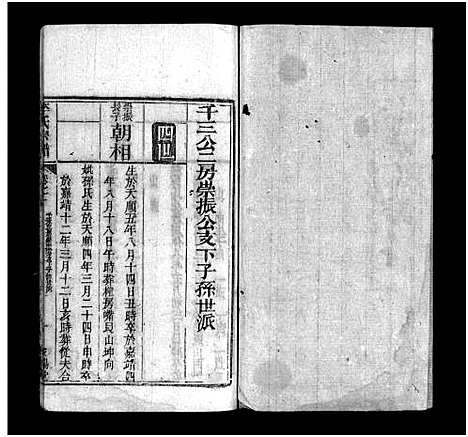 千三公二房崇振公支下子孫世派
四世
崇振長子
朝相
生於天順五年八月十四日丑時卒於嘉靖四
年八月十八日午時葬樟房嘴艮山坤向
妣孫氏生於天順四年三月二十四日申時卒
於嘉靖十二年三月十二日亥時葬從夫合
李氏宗譜